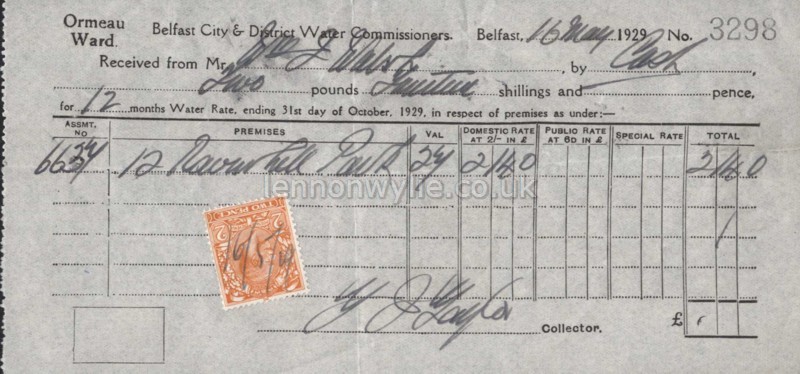 Ormeau Ward.
Belfast City & District Water Commissioners. Belfast, 16 May 1929 No. 3298
Received from Mr J Watson, by Cash
Two pounds fourteen shillings and pence,
for 12 months Water Rate, ending 31st day of October, 1929, in respect of premises as under:—
ASSMT. NO PREMISES VAL DOMESTIC RATE AT 2/- IN £ PUBLIC RATE AT 6D IN £ SPECIAL RATE TOTAL
12 Ravenhill Park 27 2 14 0 2 14 0
lennonwylie.co.uk
TWO PENCE
16/5/29
J Taylor Collector. £